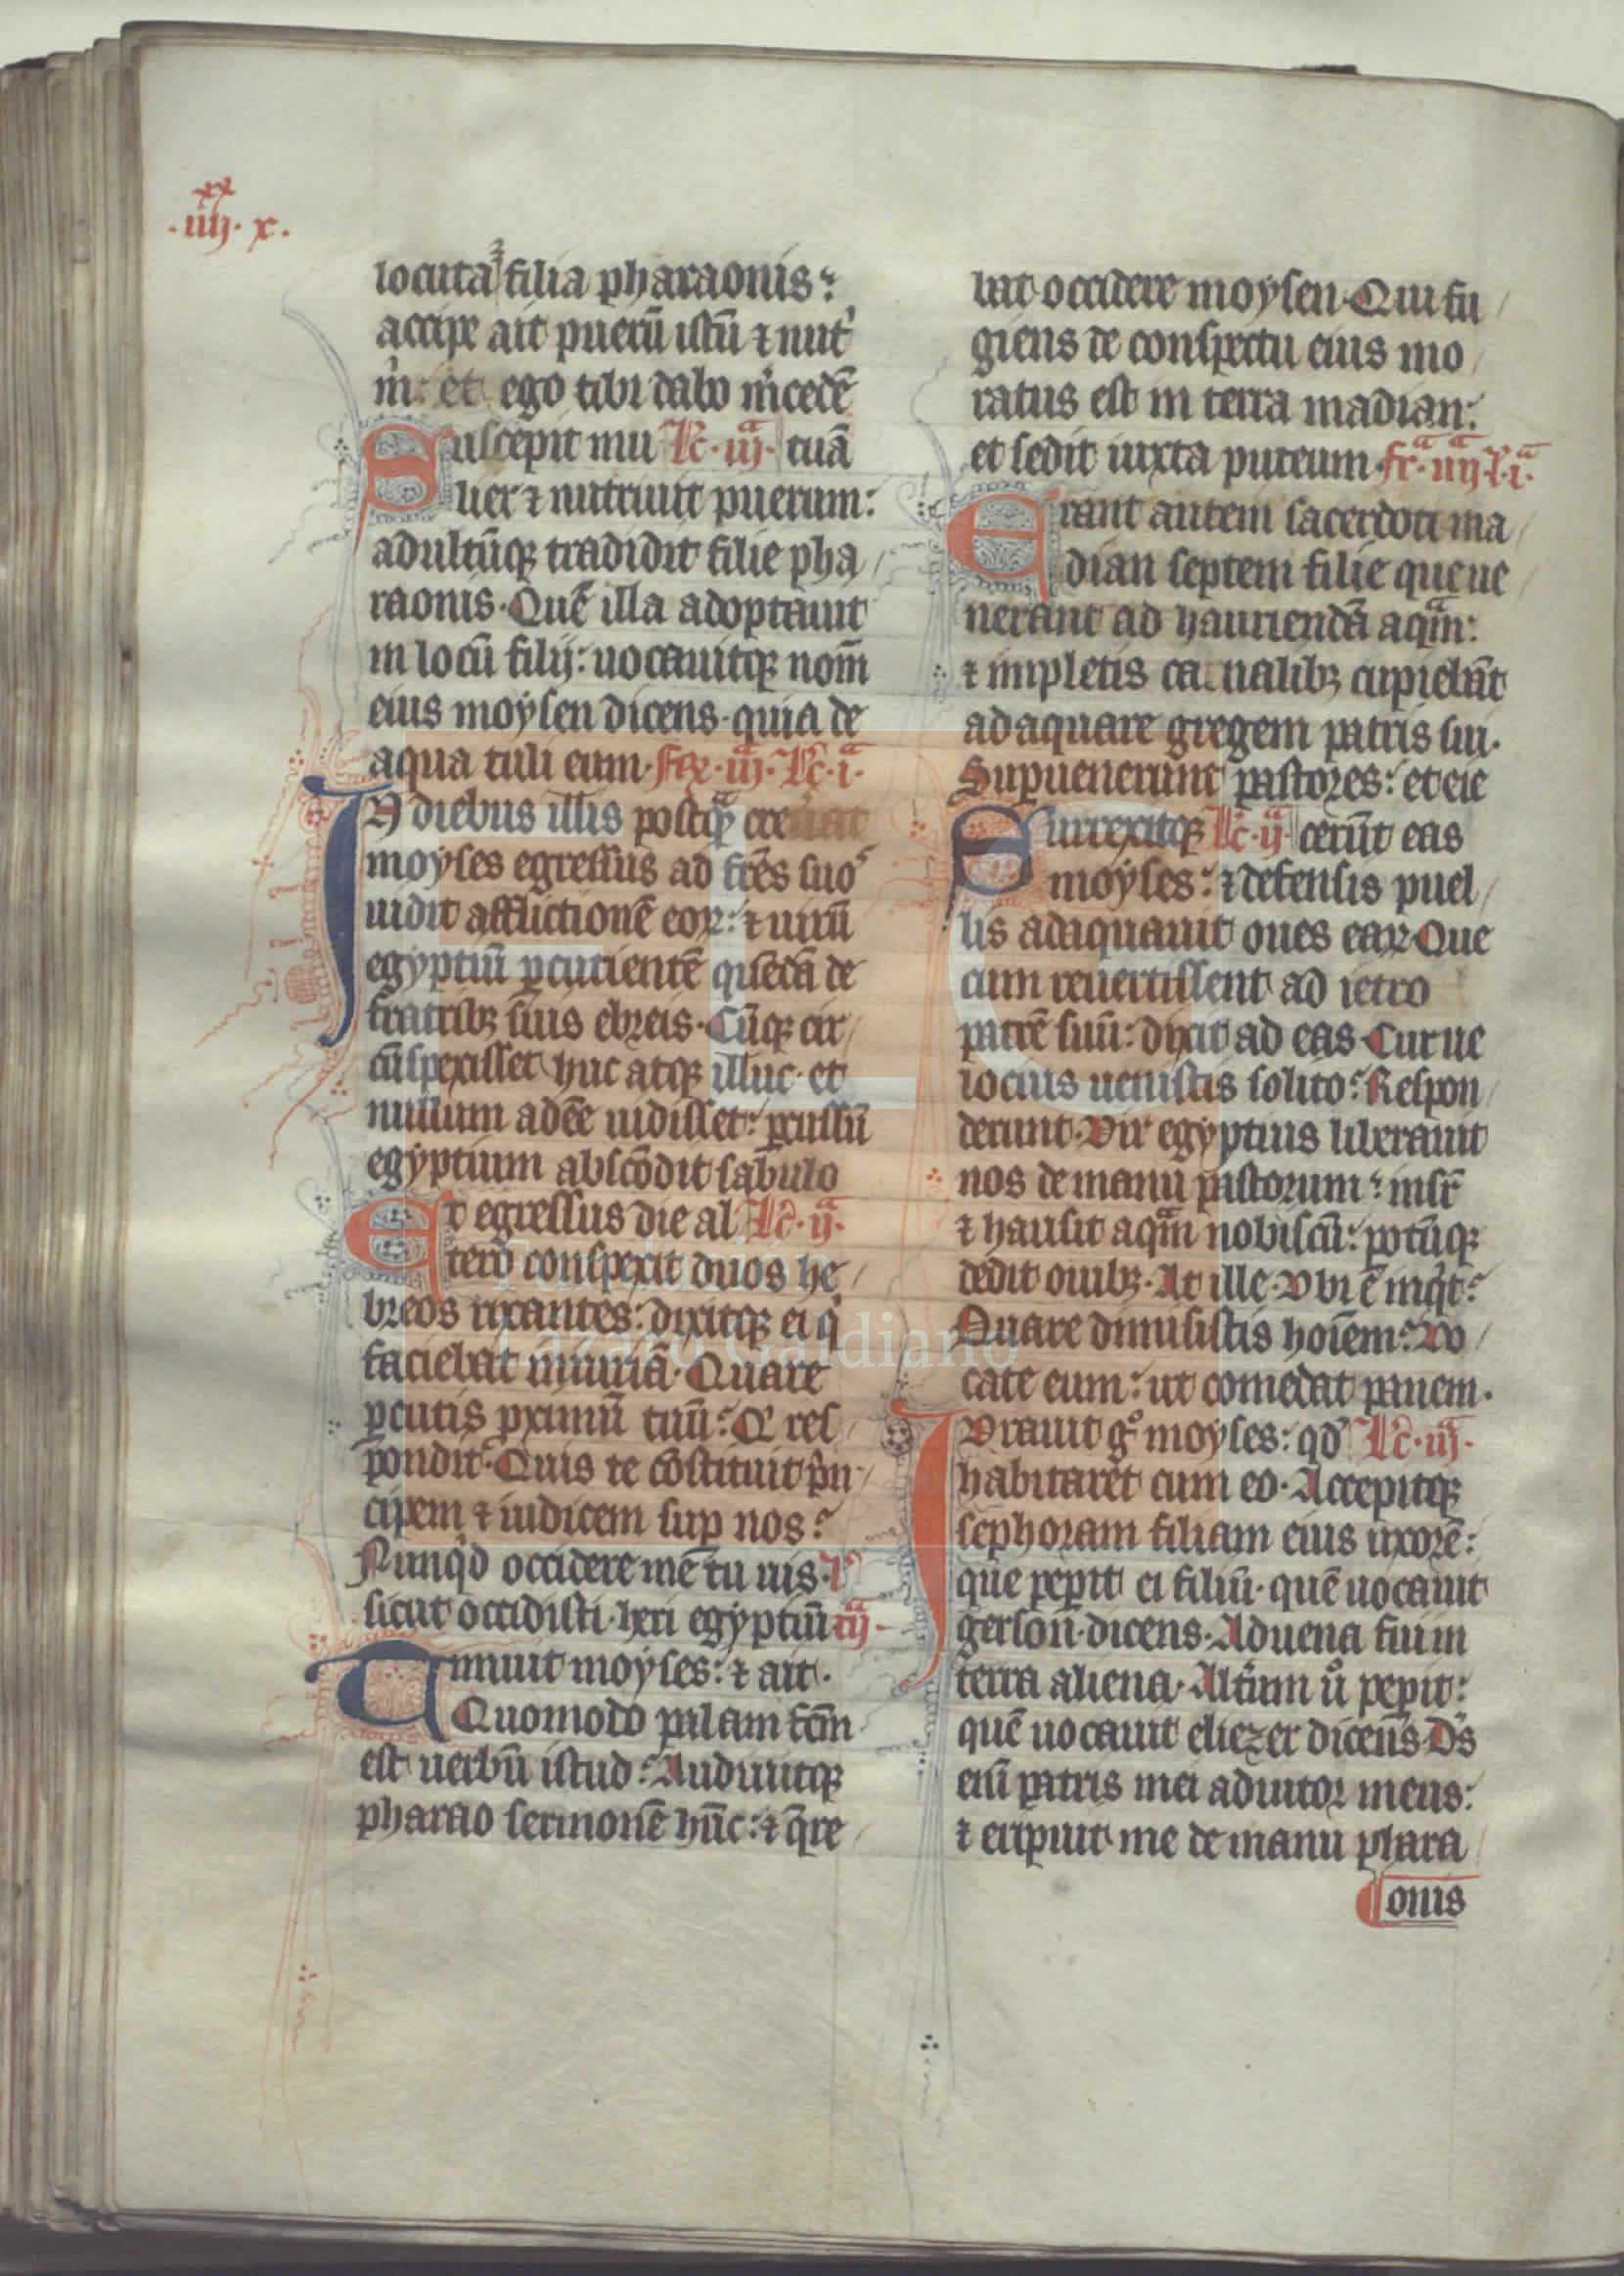 xx
.iiij. x.
locuta ē filia pharaonis:
accipe ait puerū istū ⁊ nut'
m̄: et ego tibi dabo m̄cedē
Suscepit mu Lc̄.iijᵃ. tuā
lier ⁊ nutriuit puerum:
adultūqꝫ tradidit filie pha
raonis. Quē illa adoptauit
in locū filij: uocauitqꝫ nom̄
eius moysen dicens. quia de
aqua tuli eum. .iijᵃ. Lc̄.iᵃ.
IN diebus illis postqᵃꝫ creuerat
moyses egressus ad fr̄es suos
uidit afflictionē eoꝝ: ⁊ uirū
egyptiū ꝑcutientē quēdā de
fratribꝫ suis ebreis. Cūqꝫ cir
cūspexisset huc atqꝫ illuc. et
nullum adēe uidisset: ꝑcussū
egyptium abscōdit sabulo
Et egressus die al Lc̄.ijᵃ.
tero conspexit duos he
breos rixantes: dixitqꝫ ei q'
faciebat iniuriā. Quare
ꝑcutis ꝓximū tuū: Qⁱ res
pondit. Quis te cōstituit pⁿ
cipem ⁊ iudicem suꝑ nos:
Nunqͥd occidere me tu uis. L'
sicut occidisti heri egyptiū iijᵃ.
Timuit moyses: ⁊ ait.
Quomodo palam fcm̄
est uerbū istud: Audiuitqꝫ
pharao sermonē hūc: ⁊ q̄re
bat occidere moysen. Qui fu
giens de conspectu eius mo
ratus est in terra madian:
et sedit iuxta puteum. fr̄ᵃ.iiijᵃ. l.iᵃ.
Erant autem sacerdoti ma
dian septem filie que ue
nerant ad hauriendā aqᵃm:
⁊ impletis canalibꝫ cupiebāt
adaquare gregem patris sui.
Supuenerunt pastores: et eie
Surrexitqꝫ Lc̄.ijᵃ. cerūt eas
moyses: ⁊ defensis puel
lis adaquauit oues eaꝝ. Que
cum reuertissent ad ietro
patrē suū: dixit ad eas. Cur ue
locius uenistis solito: Respon
derunt. Vir egyptius liberauit
nos de manu pastorum: insuꝑ
⁊ hausit aqᵃm nobiscū: potūqꝫ
dedit ouibꝫ. At ille. Vbi ē inqͥt:
Quare dimisistis hoīem: Vo
cate eum: ut comedat panem.
Iurauit gͦ moyses: qd' Lc̄.iijᵃ.
habitaret cum eo. Accepitqꝫ
sephoram filiam eius uxorē:
que peꝑit ei filiū. quē uocauit
gerson. dicens. Aduena fui in
terra aliena. Altūm uͦ peꝑit:
quē uocauit eliezer dicens. Ds̄
eni patris mei adiutor meus:
⁊ eripuit me de manu phara
onis
Lázaro Galdiano